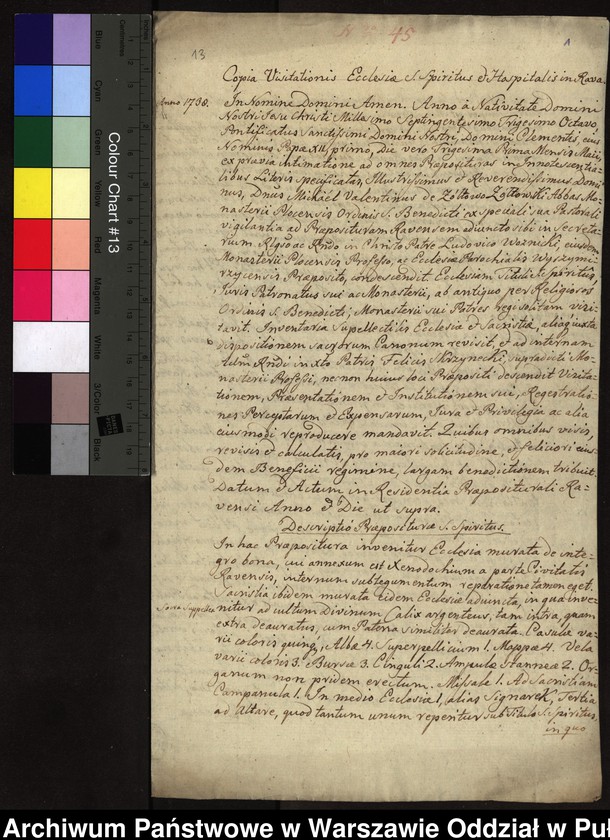 45
13
1
Copia Visitationis Ecclesiæ S. Spiritus & Hospitalis in Rava
Anno 1738.
In Nomine Domini Amen. Anno à Nativitate Domini
Nostri Jesu Christi Millesimo Septingentesimo Trigesimo Octavo,
Pontificatus Sanctissimi Domini Nostri, Domini Clementis, eius
Nominis Papæ XII, primo, Die vero Trigesima Prima Mensis Maii,
ex prævia Intimatione ad omnes Præposituras in Innotescentia-
libus Literis specificatas, Illustrissimus & Reverendissimus Domi-
nus, Dnus Mikael Valentinus de Zółtowo Zołtowski Abbas Mo-
nasterii Plocensis Ordinis S. Benedicti ex speciali sua Pastorali
vigilantia ad Præposituram Ravensem adiuncto sibi in Secreta-
rium Rlgso ac Rndo in Christo Patre Ludovico Woznicki, eiusdem
Monasterii Plocensis Professo, ac Ecclesiæ Parochialis Wyszymi-
rzycensis Præposito, condescendit. Ecclesiam Tituli S. Spiritus,
Juris Patronatus sui ac Monasterii, ab antiquo per Religiosos
Ordinis S. Benedicti, Monasterii sui Patres regi solitam visi-
tavit. Inventaria Supellectilis Ecclesiæ & Sacristiæ, aliaq iuxta
dispositionem sacrorum Canonum revisit, & ad internam
Rndi in Xto Patris Felicis Skrzynecki supradicti Mo-
nasterii Professi, nec non huius loci Præpositi descendit Visita-
tionem, Præsentationem & Institutionem sui, Regestratio-
nes Perceptarum & Expensarum, Jura & Privilegia ac alia
eiusmodi reproducere mandavit. Quibus omnibus visis,
revisis & calculatis, pro maiori solicitudine, & feliciori eius-
dem Beneficii regimine, largam benedictionem tribuit.
Datum & Actum in Residentia Præpositurali Ra-
vensi Anno & Die ut supra.
Descriptio Præposituræ S. Spiritus.
In hac Præpositura invenitur Ecclesia murata de inte-
gro bona, cui annexum est Xenodochium a parte Civitatis
Ravensis, internum subtegumentum reparatione tamen eget.
Sacristia ibidem murata eidem Ecclesiæ adiuncta, in qua inve-
Sacra Suppellex
nitur ad cultum Divinum Calix argenteus, tam intra, quam
extra deauratus, cum Patena similiter deaurata. Casulæ va-
rii coloris quinq, Albæ 4. Superpellicium 1. Mappæ 4. Vela
varii coloris 3. Bursæ 3. Cinguli 2. Ampulæ stanneæ 2. Or-
ganum non pridem erectum. Missale 1. Ad Sacristiam
Campanula 1. In medio Ecclesiæ 1, alias Signarek, Tertia
ad Altare, quod tantum unum reperitur sub Titulo S. Spiritus,
in quo
Colour Chart #13
Blue
Cyan
Green
Yellow
Red
Magenta
White
3/Color
Black
Centimetres
Inches
Archiwum Państwowe w Warszawie Oddział w Puł